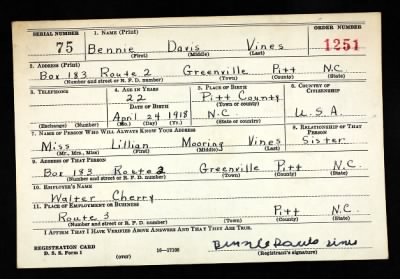 SERIAL NUMBER 1. NAME (Print) ORDER NUMBER
75 Bennie Davis Vines 1251
(First) (Middle) (Last)
2. ADDRESS (Print)
Box 183 Route 2 Greenville Pitt N.C.
(Number and street or R. F. D. number) (Town) (County) (State)
3. TELEPHONE 4. AGE IN YEARS 5. PLACE OF BIRTH 6. COUNTRY OF CITIZENSHIP
22 Pitt County
DATE OF BIRTH (Town or county)
April 24 1918 N.C U.S.A.
(Exchange) (Number) (Mo.) (Day) (Yr.) (State or country)
7. NAME OF PERSON WHO WILL ALWAYS KNOW YOUR ADDRESS 8. RELATIONSHIP OF THAT PERSON
Miss Lillian Mooring Vines Sister
(Mr., Mrs., Miss) (First) (Middle) (Last)
9. ADDRESS OF THAT PERSON
Box 183 Route 2 Greenville Pitt N.C.
(Number and street or R. F. D. number) (Town) (County) (State)
10. EMPLOYER'S NAME
Walter Cherry
11. PLACE OF EMPLOYMENT OR BUSINESS
Route 3 Pitt N.C.
(Number and street or R. F. D. number) (Town) (County) (State)
I AFFIRM THAT I HAVE VERIFIED ABOVE ANSWERS AND THAT THEY ARE TRUE.
REGISTRATION CARD
D. S. S. Form 1 (over) 16—17105 (Registrant's signature)